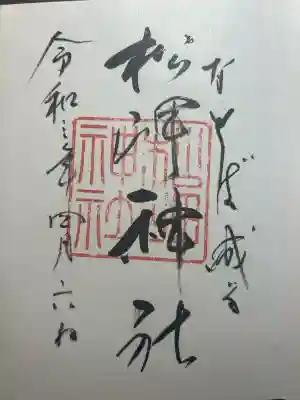 なせば成る
松岬神社
令和三年四月六日
松岬
神社